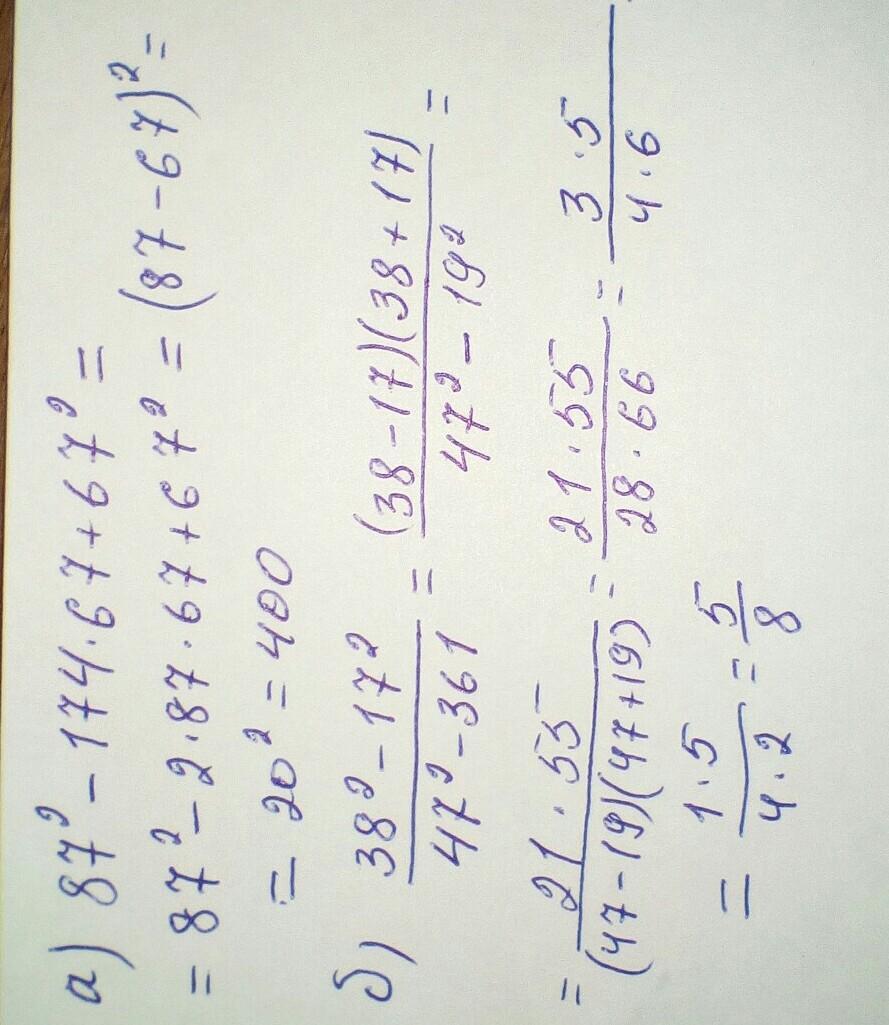 а) 87² - 174·67 + 67² =
= 87² - 2·87·67 + 67² = (87 - 67)² =
= 20² = 400
б) (38² - 17²)/(47² - 361) = ((38 - 17)(38 + 17))/(47² - 19²) =
= (21·55)/((47 - 19)(47 + 19)) = (21·55)/(28·66) = (3·5)/(4·6)
= (1·5)/(4·2) = 5/8